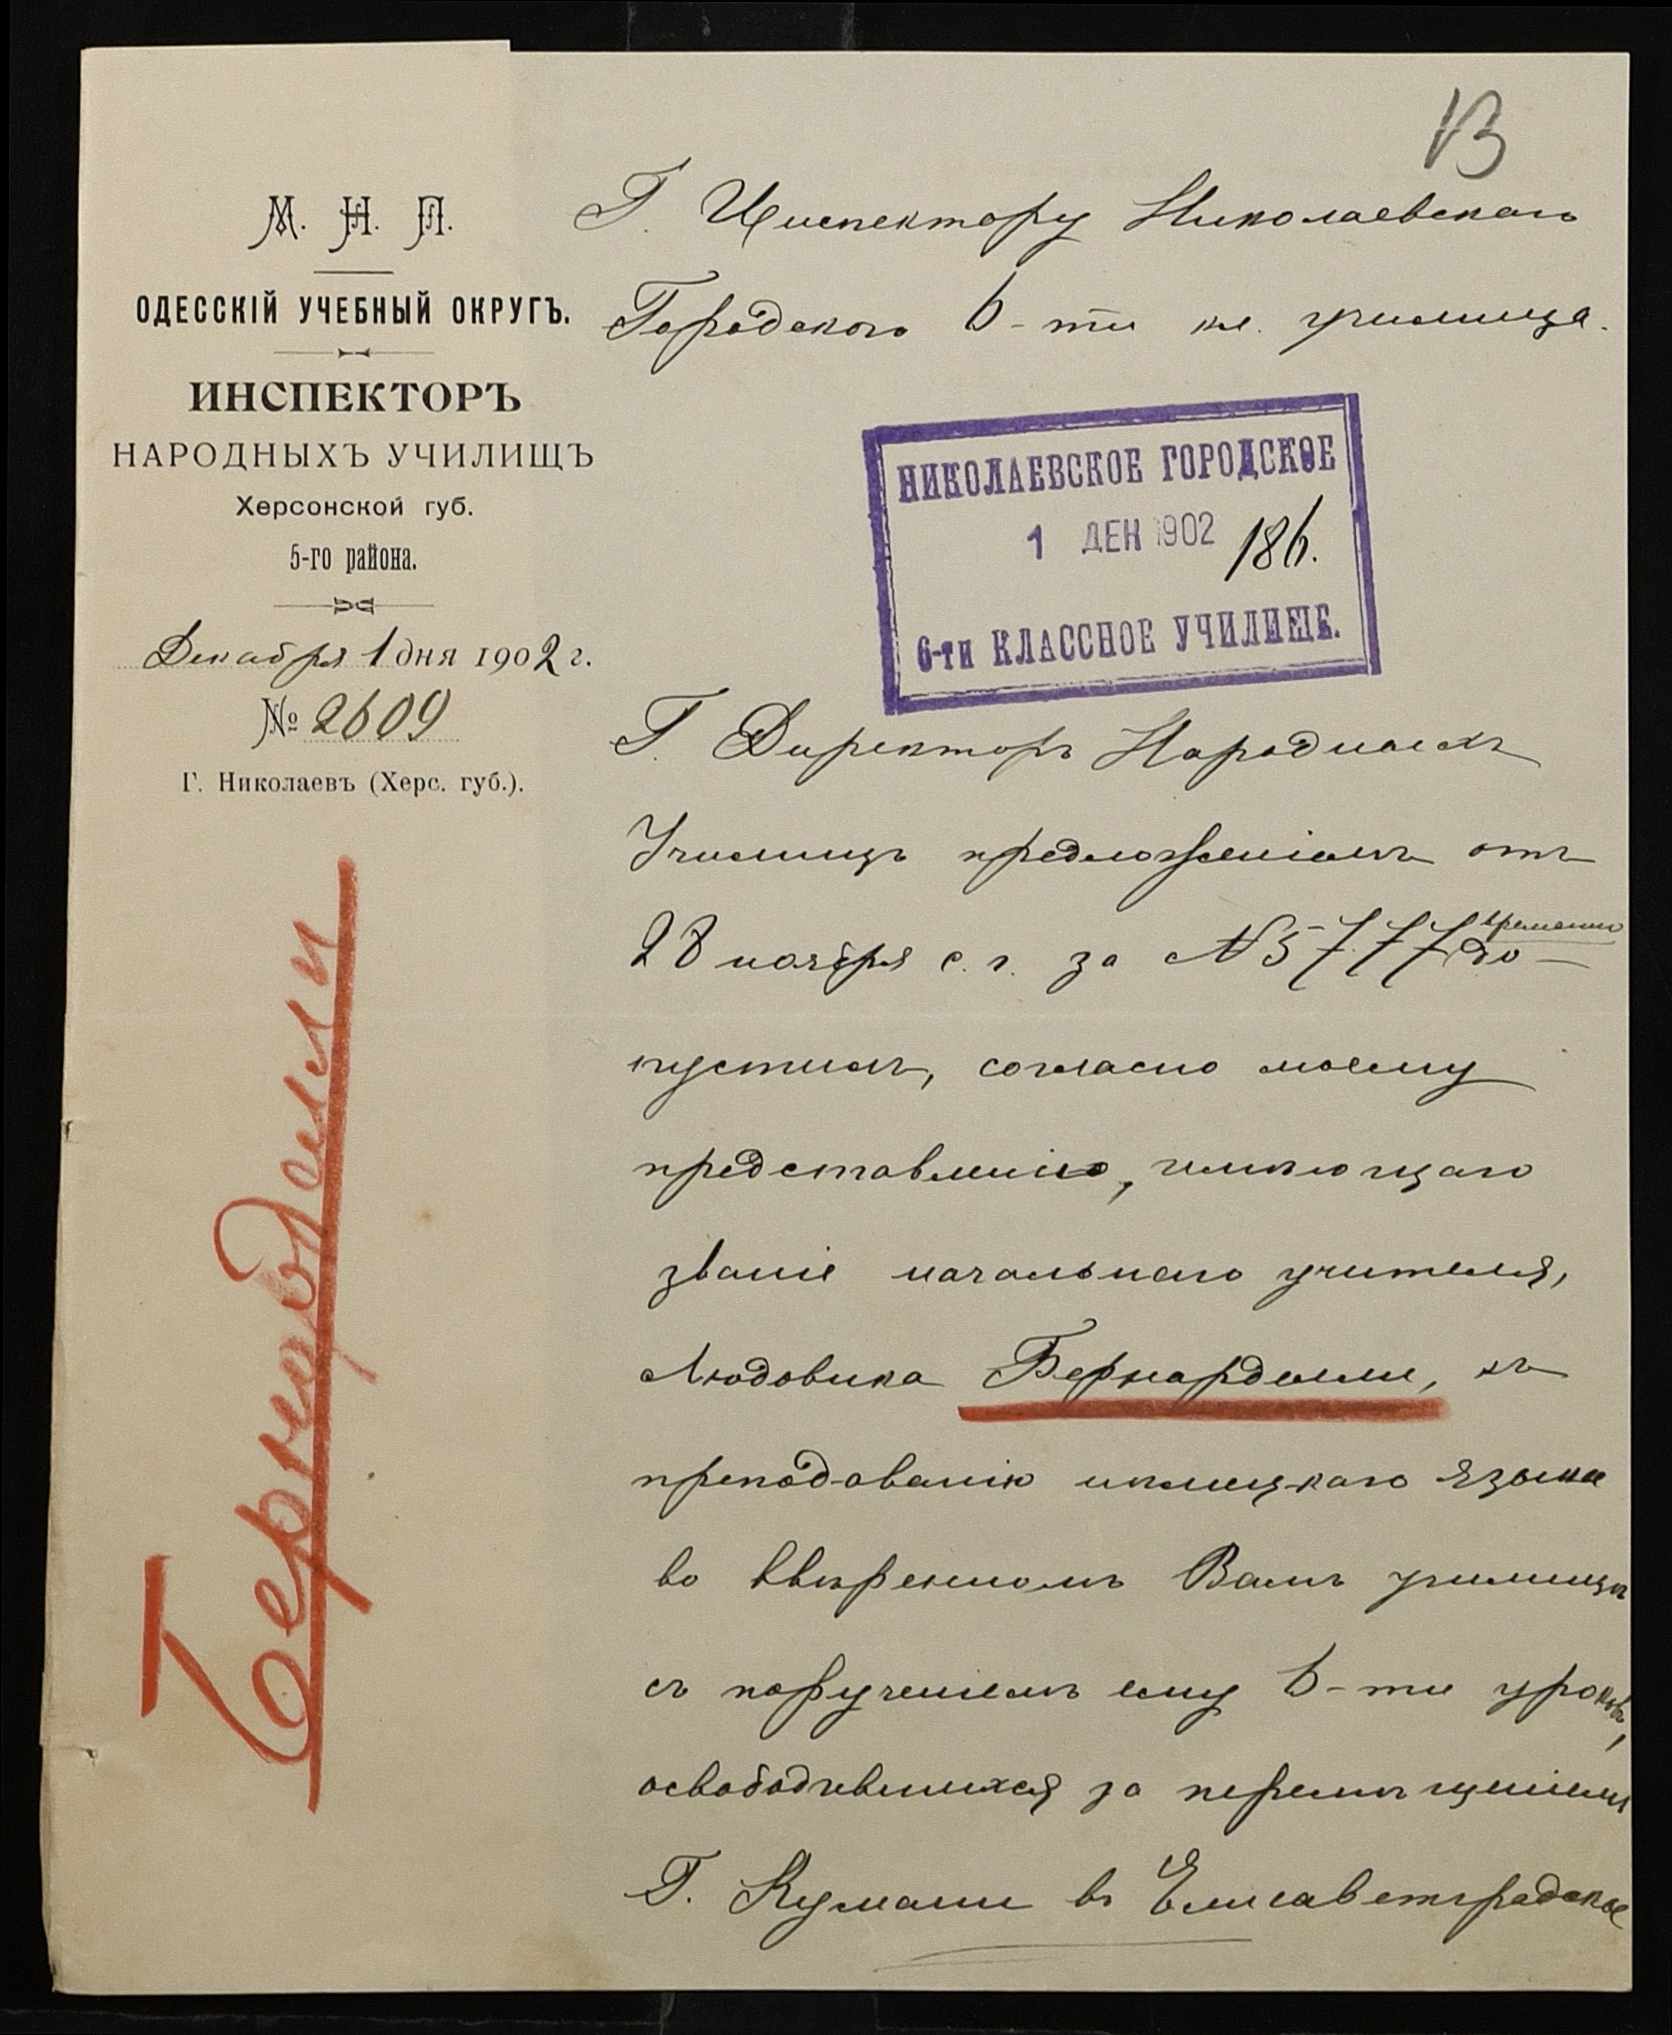 13
М. Н. П.
ОДЕССКІЙ УЧЕБНЫЙ ОКРУГЪ.
ИНСПЕКТОРЪ
НАРОДНЫХЪ УЧИЛИЩЪ
Херсонской губ.
5-го района.
Декабря 1 дня 1902 г.
№ 2609
Г. Николаевъ (Херс. губ.).
Бернардели
Г. Инспектору Николаевскаго
Городского 6-ти кл. училища.
НИКОЛАЕВСКОЕ ГОРОДСКОЕ
1 ДЕК 1902 186.
6-ти КЛАССНОЕ УЧИЛИЩЕ.
Г. Директоръ Народныхъ
Училищъ предложеніемъ отъ
временно
28 ноября с. г. за № 5777 до-
пустилъ, согласно моему
представленію, имѣющаго
званіе начальнаго учителя,
Людовика Бернардели, къ
преподаванію нѣмецкаго языка
во ввѣренномъ Вамъ училищѣ
съ порученіемъ ему 6-ти уроковъ,
освободившихся за перемѣщеніемъ
Г. Кумани въ Елисаветградское